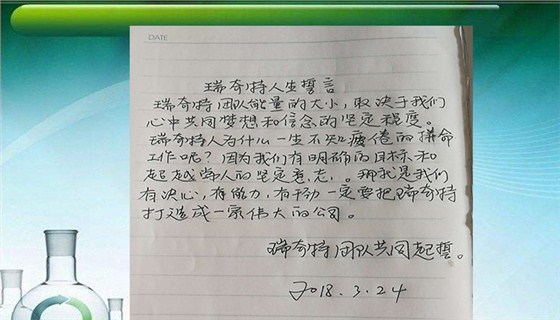 DATE
瑞奇特人生誓言
瑞奇特团队能量的大小，取决于我们
心中共同梦想和信念的坚定程度。
瑞奇特人为什么一生不知疲倦的拼命
工作呢？因为我们有明确的目标和
起越常人的坚定意志。那就是我们
有决心，有能力，有干劲一定要把瑞奇特
打造成一家伟大的公司。
瑞奇特团队共同起誓。
2018.3.24